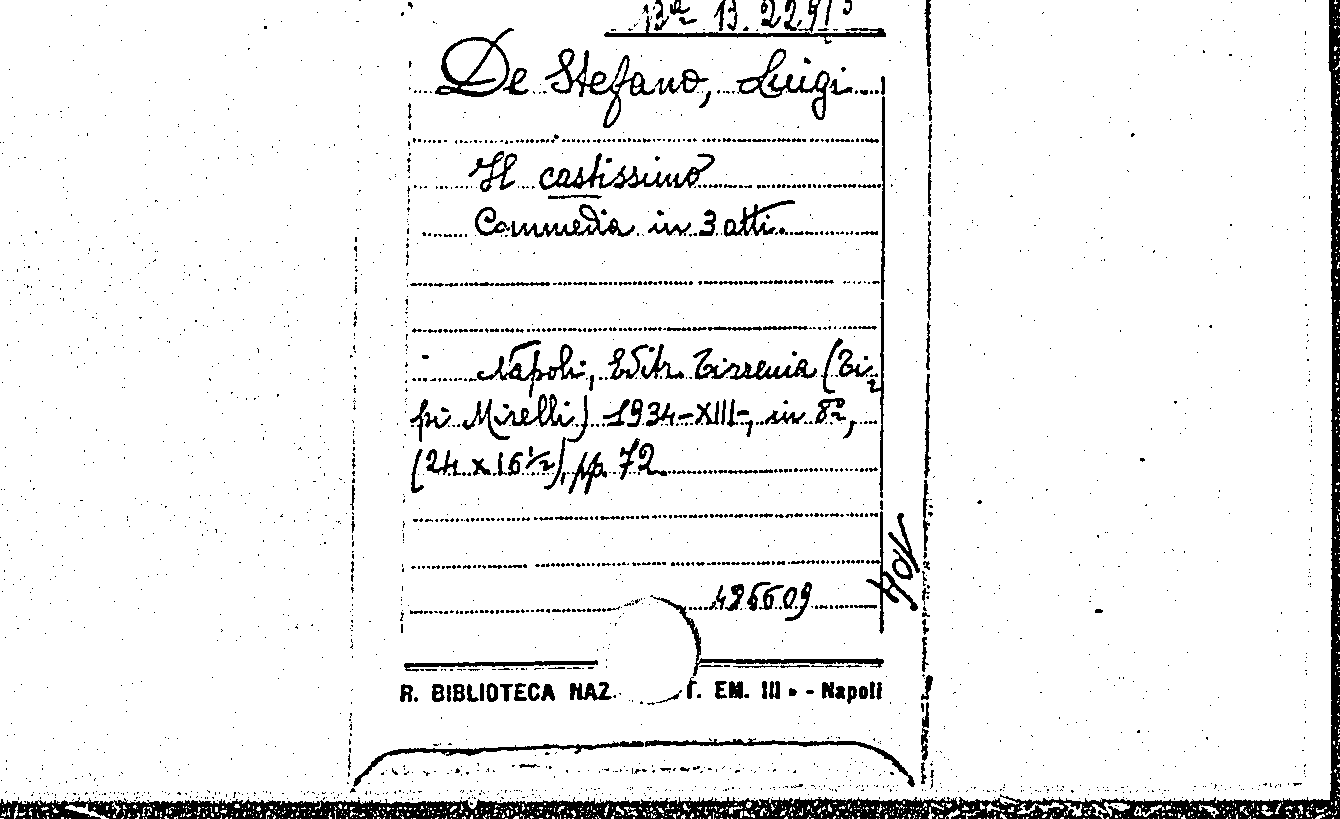 De Stefano, Luigi.
Il castissimo
Commedia in 3 atti.
Napoli, Editr. Tirrenia (Ti-
pi Mirelli) 1934-XIII-, in 8°,
(24 x 16 1/2), pp. 72.
R. BIBLIOTECA NAZ. T. EM. III - Napoli